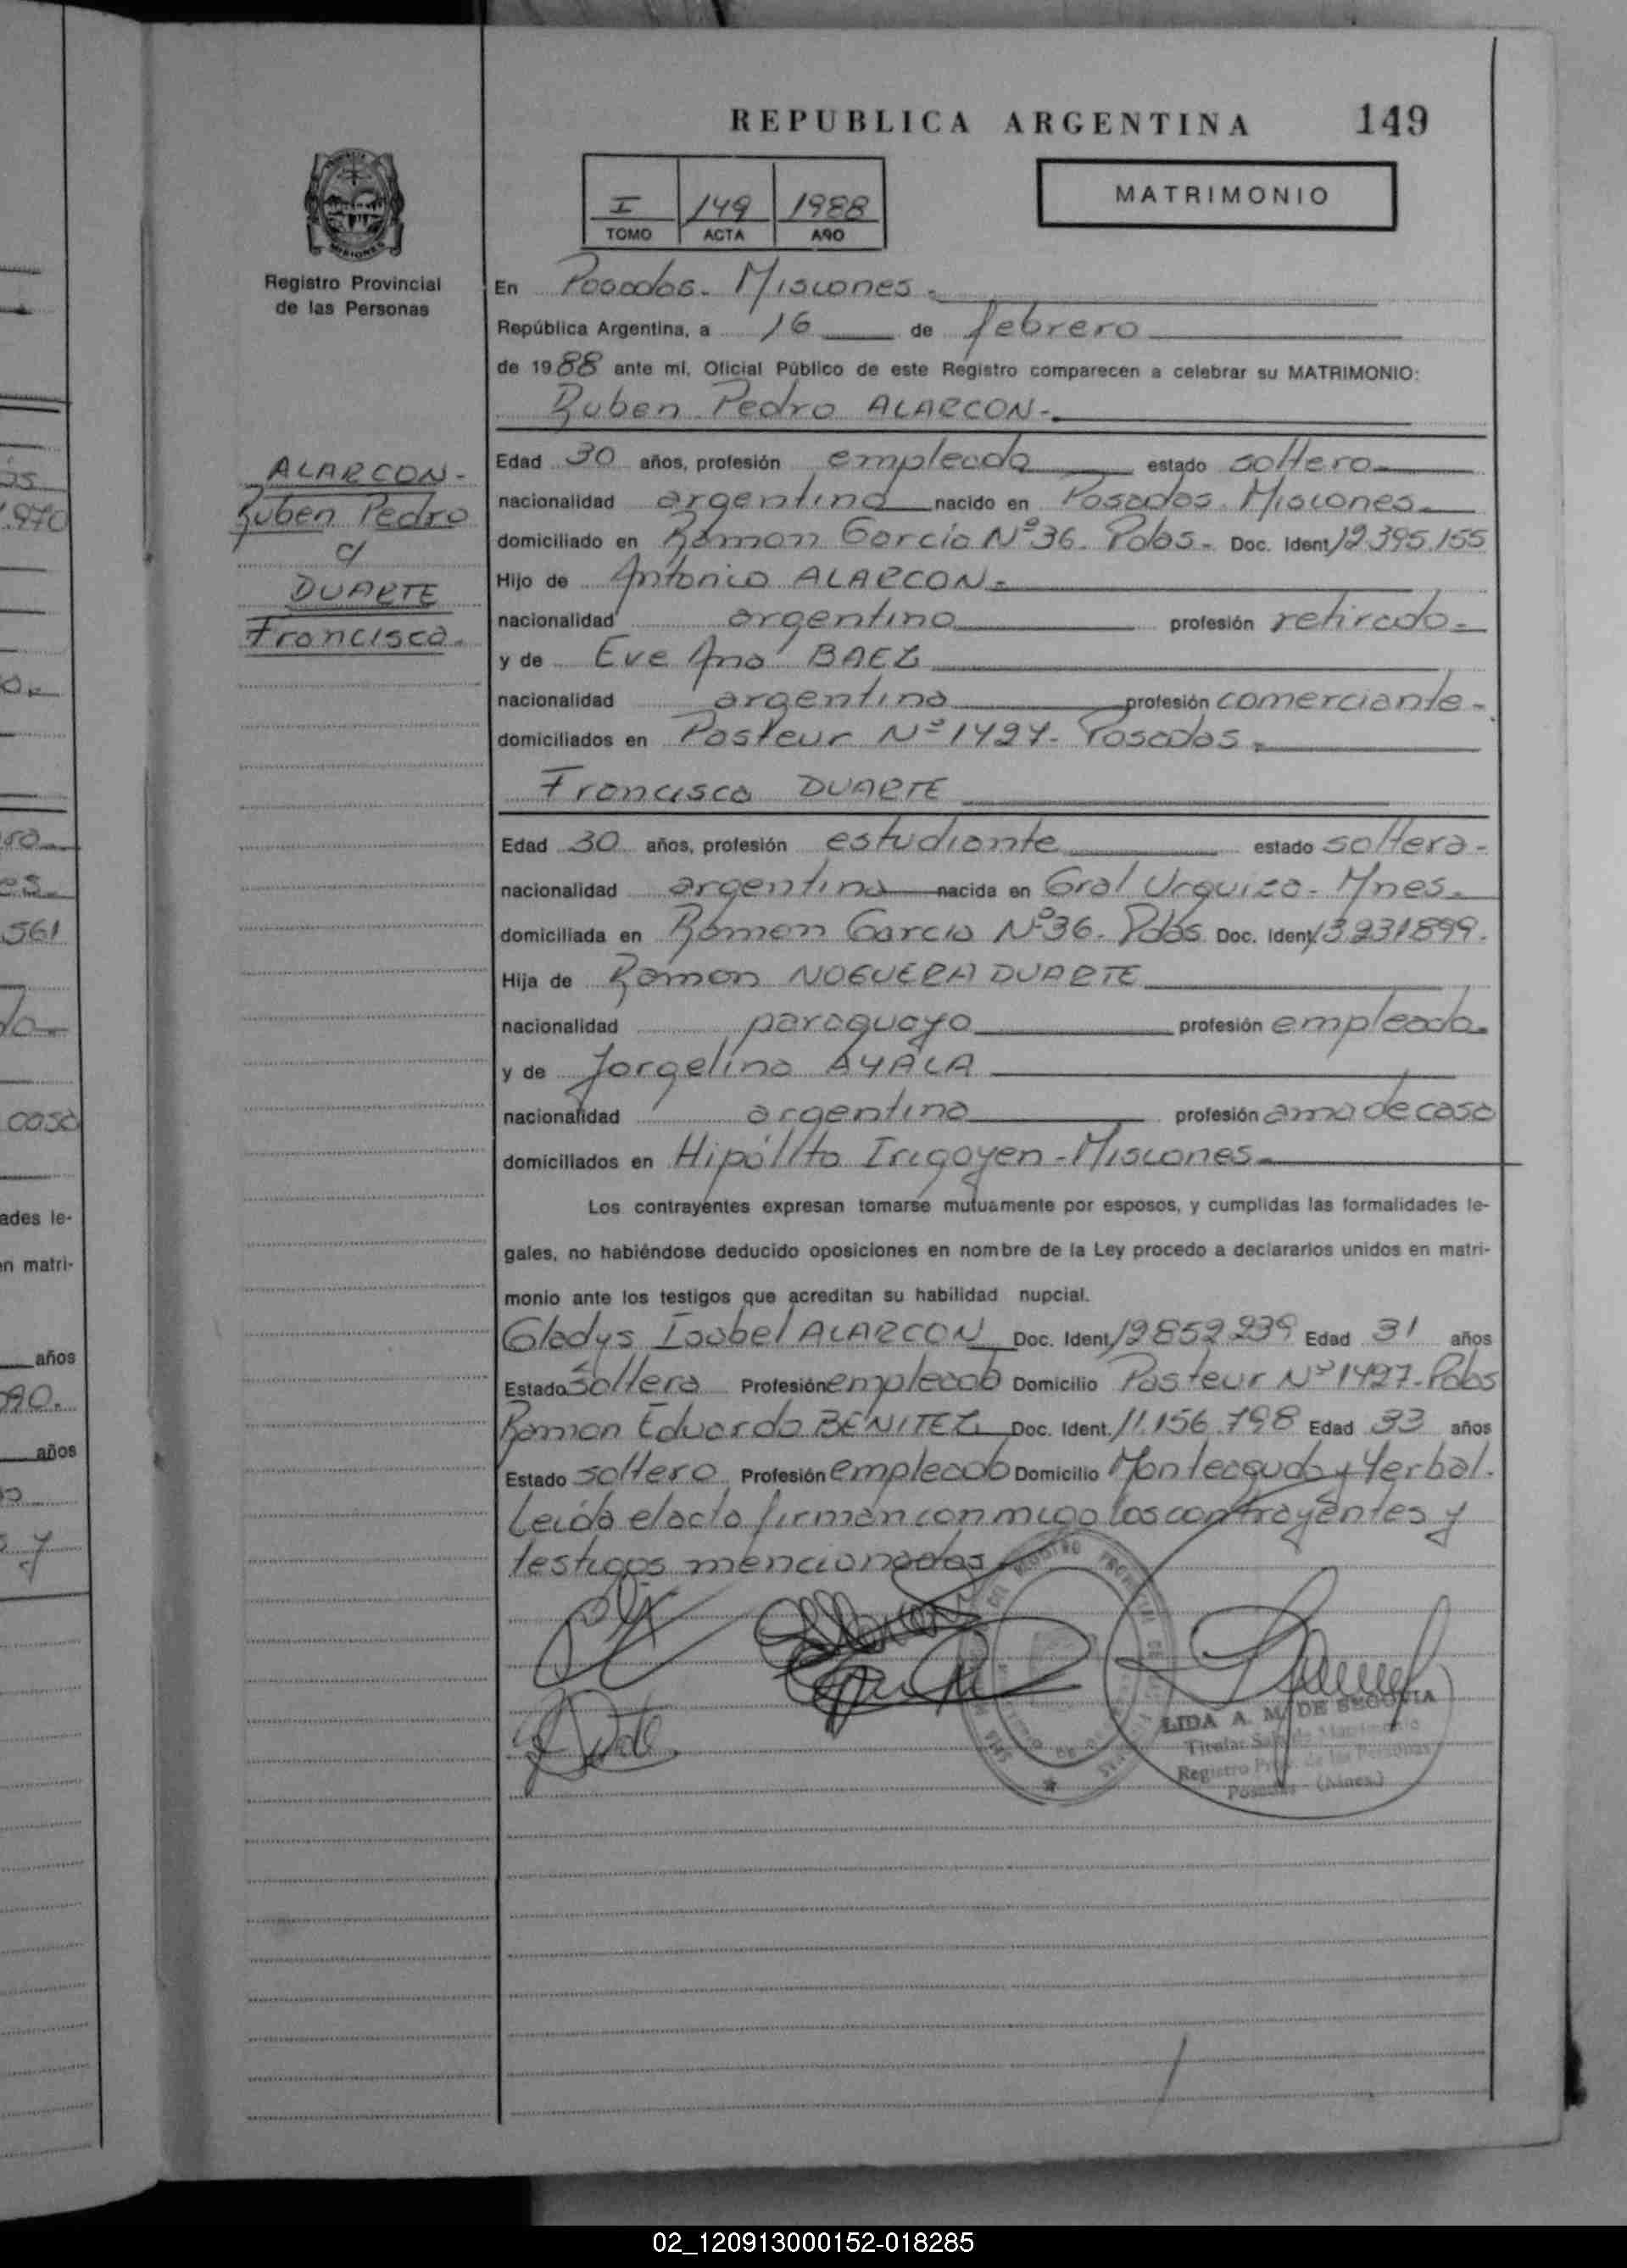 REPUBLICA ARGENTINA 149
MATRIMONIO
I 149 1988
TOMO ACTA AÑO
MISIONES
Registro Provincial
de las Personas
En Posadas. Misiones.
República Argentina, a 16 de febrero
de 1988 ante mí, Oficial Público de este Registro comparecen a celebrar su MATRIMONIO:
Ruben Pedro ALARCON.
ALARCON-
Ruben Pedro
c/
DUARTE
Francisca.
Edad 30 años, profesión empleado estado soltero
nacionalidad argentina nacido en Posadas. Misiones.
domiciliado en Ramon Garcia Nº36. Pdas. Doc. Ident 12.395.155
Hijo de Antonio ALARCON.
nacionalidad argentina profesión retirado.
y de Eve Ana BAEZ
nacionalidad argentina profesión comerciante.
domiciliados en Pasteur Nº 1427. Posadas.
Francisca DUARTE
Edad 30 años, profesión estudiante estado soltera.
nacionalidad argentina nacida en Gral Urquiza. Mnes.
domiciliada en Ramon Garcia Nº36. Pdas Doc. Ident 13.231899.
Hija de Ramon NOGUERA DUARTE
nacionalidad paraguayo profesión empleado.
y de Jorgelina AYALA
nacionalidad argentina profesión ama de casa
domiciliados en Hipólito Irigoyen - Misiones
Los contrayentes expresan tomarse mutuamente por esposos, y cumplidas las formalidades le-
gales, no habiéndose deducido oposiciones en nombre de la Ley procedo a declararlos unidos en matri-
monio ante los testigos que acreditan su habilidad nupcial.
Gladys Isabel ALARCON Doc. Ident 12852239 Edad 31 años
Estado Soltera Profesión empleada Domicilio Pasteur Nº 1427. Pdas
Ramon Eduardo BENITEZ Doc. Ident. 11.156.798 Edad 33 años
Estado soltero Profesión empleado Domicilio Monteagudo y Yerbal.
Leida el acta firman conmigo los contrayentes y
testigos mencionados
LIDA A. M. DE SEGOVIA
Titular Sala de Matrimonio
Registro Prov. de las Personas
Posadas - (Mnes.)
02_120913000152-018285